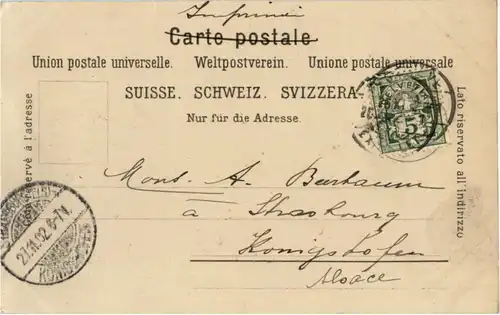 Imprimé
Carte postale
Union postale universelle. Weltpostverein. Unione postale universale
SUISSE. SCHWEIZ. SVIZZERA.
Nur für die Adresse.
servé à l'adresse
Lato riservato all'indirizzo
HELVETIA
5
Mons. A. Bierbaum
à Strasbourg
Königshofen
Alsace
27.11.02. 6-7N.